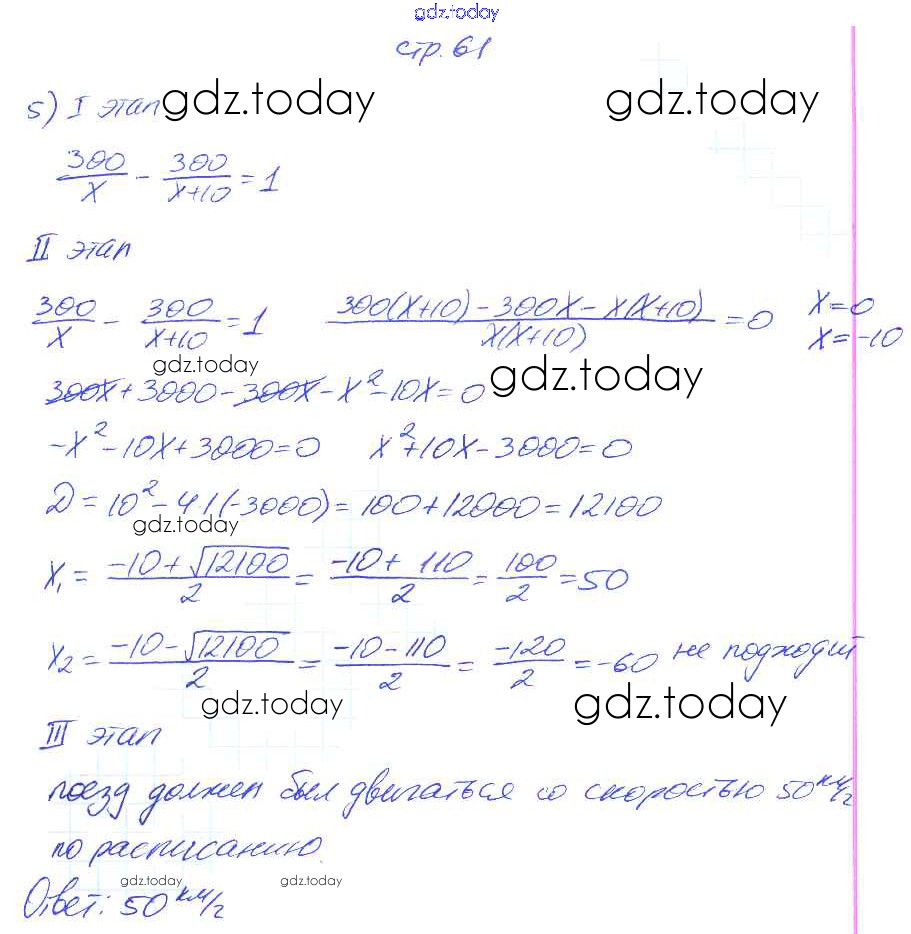 gdz.today
стр. 61
5) I этап gdz.today gdz.today
300/x - 300/(x+10) = 1
II этап
300/x - 300/(x+10) = 1 (300(x+10) - 300x - x(x+10))/(x(x+10)) = 0 x=0
x=-10
gdz.today gdz.today
300x + 3000 - 300x - x² - 10x = 0
-x² - 10x + 3000 = 0 x² + 10x - 3000 = 0
Д = 10² - 4·1(-3000) = 100 + 12000 = 12100
gdz.today
x₁ = (-10 + √12100)/2 = (-10 + 110)/2 = 100/2 = 50
x₂ = (-10 - √12100)/2 = (-10 - 110)/2 = -120/2 = -60 не подходит
gdz.today gdz.today
III этап
поезд должен был двигаться со скоростью 50 км/ч
по расписанию.
gdz.today gdz.today
Ответ: 50 км/ч